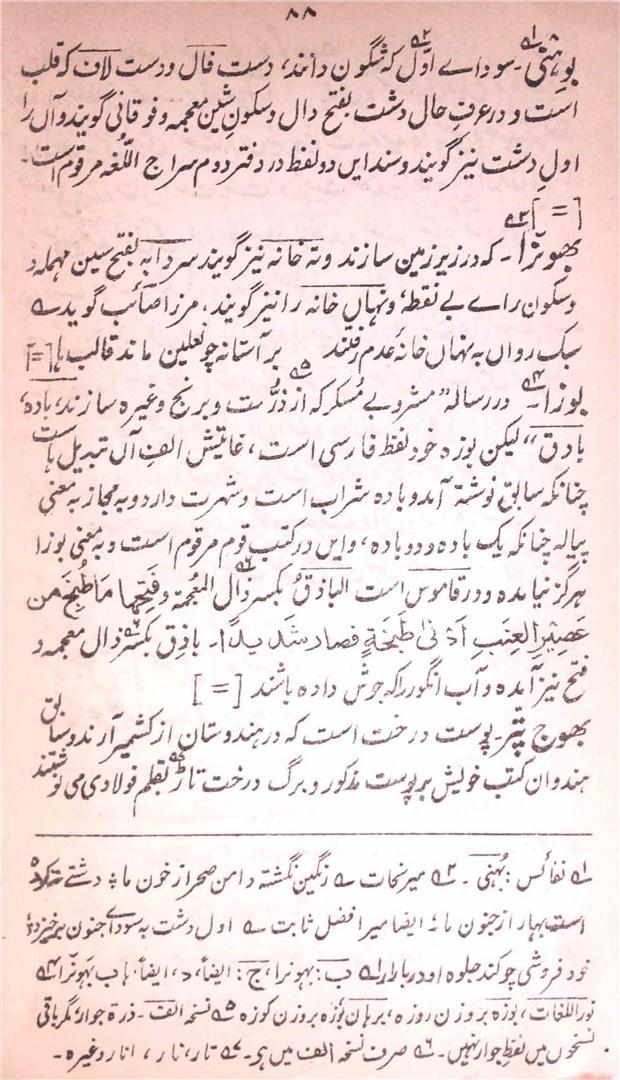 ۸۸
بوہنی۱؎۔ سوداے اوّل۲؎ کہ شگون دانند، دست فال و دست لاف کہ قلب
است و در عرفِ حال دشت بفتح دال و سکون شین معجمہ و فوقانی گویند و آں را
اولِ دشت نیز گویند و سند ایں دو لفظ در دفتر دوم سراج اللّغہ مرقوم است۔
[=]
بھونرا۳؎۔ کہ در زیر زمین سازند و تہ خانہ نیز گویند سردابہ بفتح سین مہملہ و
و سکون راے بے نقطہ و نہاں خانہ را نیز گویند، مرزا صائب گوید؎
سبک رواں بہ نہاں خانۂ عدم رفتند بر آستانہ چو نعلین ماند قالب ہا [=]
بوزا۴؎۔ در رسالہ ”مشروبے مُسکر کہ از ذرّت۵؎ و برنج و غیرہ سازند، بادہ،
باذق“ لیکن بوزہ خود لفظ فارسی است، غایتیش الفِ آں تبدیل ہا ست
چنانکہ سابق نوشتہ آمد و بادہ شراب است و شہرت دارد و بہ مجاز بہ معنی
پیالہ چنانکہ یک بادہ و دو بادہ، و ایں در کتب قوم مرقوم است و بہ معنی بوزا
ہرگز نیامدہ و در قاموس است الباذقُ بکسر ذال۶؎ المعجمۃ و فتحہا مَا طُبِخَ من
عَصِیْرِ العِنَبِ اَدْنیٰ طَبخَۃٍ فصار شَدِیدًا۔ باذِق بکسر ذال معجمہ و
فتح نیز آمدہ و آب انگور را کہ جوش دادہ باشند [=]
بھوج پتّر۔ پوست درخت است کہ در ہندوستان از کشمیر آرند و سابق
ہندوان کتب خویش بر پوست مذکور و برگ درخت تاڑ۷؎ بقلم فولادی می نوشتند
۱؎ نفائس: بُہنی۔ ۲؎ میر نجات ؎ رنگین نگشتہ دامن صحرا از خون ما؛ دشتے نکردہ
است بہار از جنون ما؛ ایضا میر افضل ثابت ؎ اول دشت بہ سوداے جنون برخیزد؛
خود فروشی چو کند جلوہ او در بازار ۳؎ ب: بہونرا، ج: ایضاً، د، ایضاً۔ ہاب بَہونرا ۴؎
نور اللغات، بوزہ بر وزن روزہ، برہان بُوزہ بروزن کوزہ ۵؎ نسخہ الف۔ ذرۃ جوار، مگر باقی
نسخوں میں لفظ جوار نہیں۔ ۶؎ صرف نسخہ الف میں ہی۔ ۷؎ تار، نار، انار وغیرہ۔